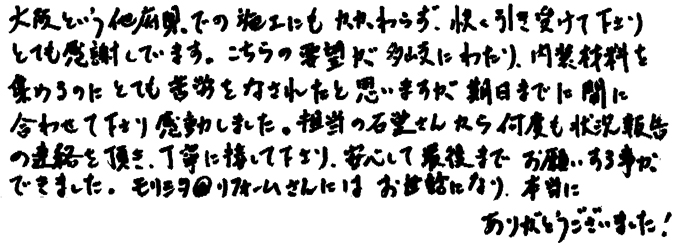 大阪という他府県での施工にもかかわらず、快く引き受けて下さり
とても感謝しています。こちらの要望が多岐にわたり、内装材料を
集めるのにとても苦労をなされたと思いますが、期日までに間に
合わせて下さり感動しました。担当の石望さんから何度も状況報告
の連絡を頂き、丁寧に接して下さり、安心して最後までお願いする事が
できました。モリシタ@リフォームさんにはお世話になり、本当に
ありがとうございました!